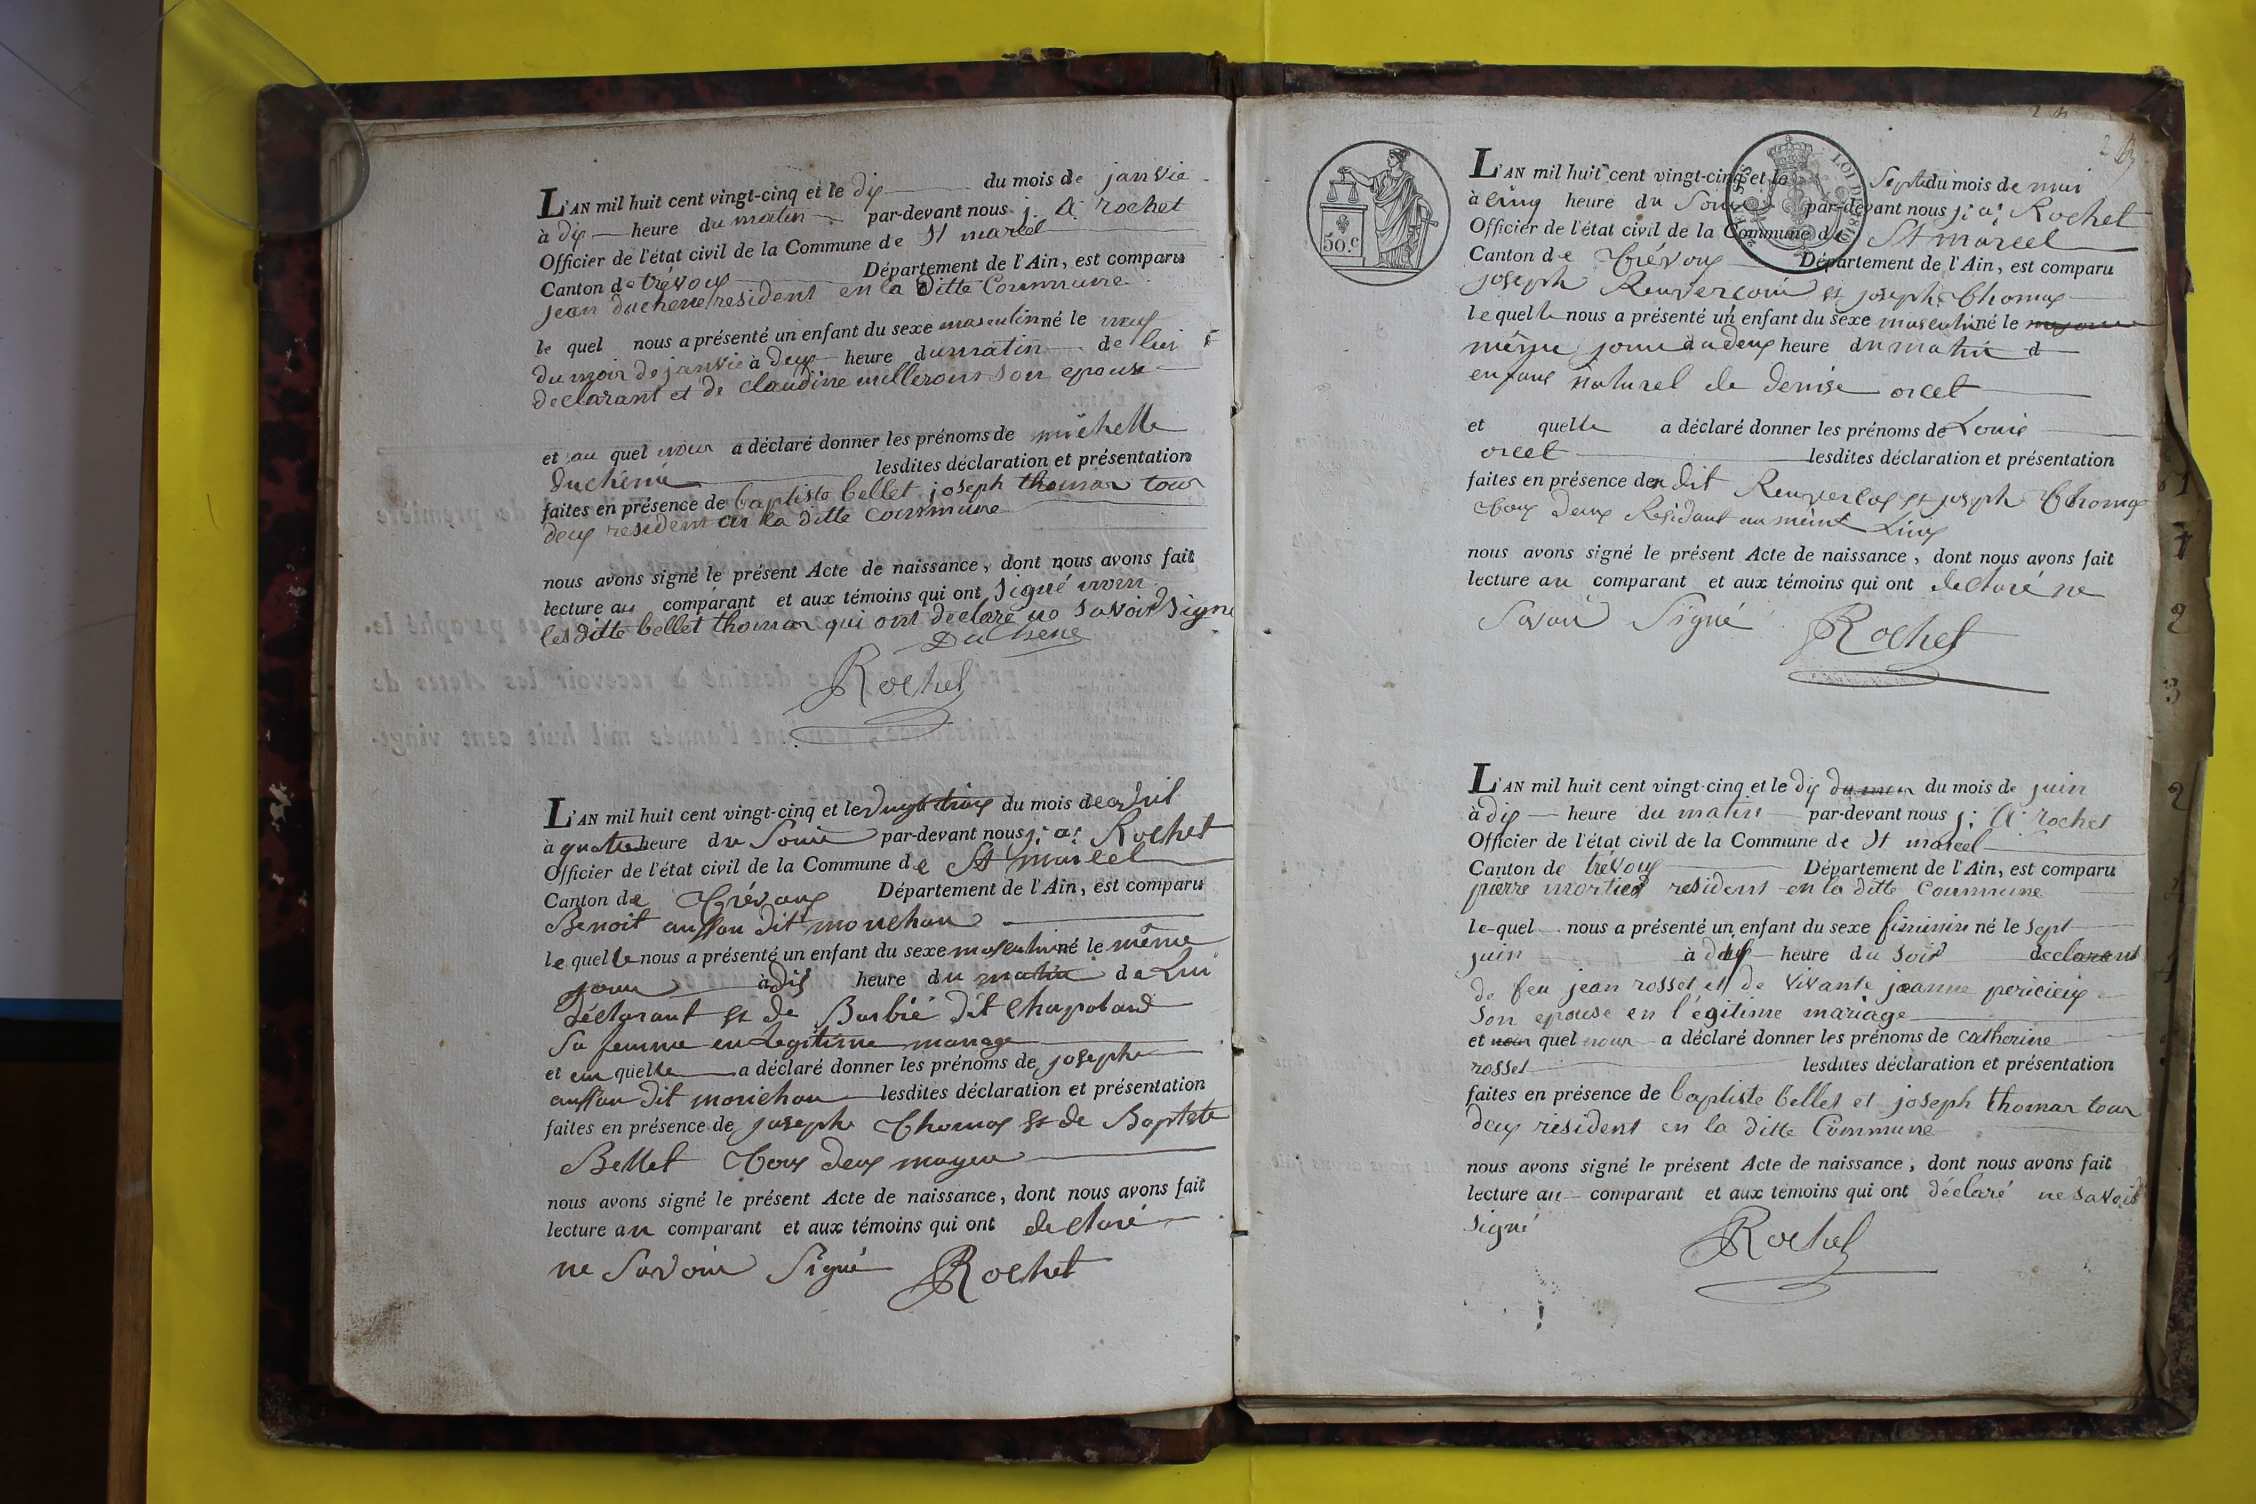 L'AN mil huit cent vingt-cinq et le dix du mois de janvié
à dix heure du matin par-devant nous j. A. rochet
Officier de l'état civil de la Commune de St marcel
Canton de trévoux Département de l'Ain, est comparu
jean duchene resident en la ditte Commune
le quel nous a présenté un enfant du sexe masculin né le neuf
du mois de janvié à deux heure du matin de lui
declarant et de claudine millerons son epouse
et au quel nous a déclaré donner les prénoms de michelle
duchéne lesdites déclaration et présentation
faites en présence de baptiste bellet joseph thomas tous
deux resident en la ditte commune
nous avons signé le présent Acte de naissance, dont nous avons fait
lecture au comparant et aux témoins qui ont signé non
les ditte bellet thomas qui ont declaré ne savoir signe
Duchene
Rochet
L'AN mil huit cent vingt-cinq et le vingt trois du mois de avril
à quatre heure du Soir par-devant nous j. a. Rochet
Officier de l'état civil de la Commune de St marcel
Canton de Trévoux Département de l'Ain, est comparu
Benoit dit monchon
le quelle nous a présenté un enfant du sexe masculin né le même
jour à dix heure du matin de Lui
déclarant et de Barbié dit Chapoland
Sa femme en Legitime mariage
et quelle a déclaré donner les prénoms de joseph
dit monchon lesdites déclaration et présentation
faites en présence de joseph Thomas et de Baptiste
Bellet tous deux
nous avons signé le présent Acte de naissance, dont nous avons fait
lecture au comparant et aux témoins qui ont declaré
ne Savoir Signé Rochet
50.c
LOI DE 1816
L'AN mil huit cent vingt-cinq et le Sept du mois de mai
à cinq heure du Soir par-devant nous j. a. Rochet
Officier de l'état civil de la Commune de St marcel
Canton de Trévoux Département de l'Ain, est comparu
joseph et joseph Thomas
le quelle nous a présenté un enfant du sexe masculin né le
même jour à deux heure du matin d
enfans naturel de denise orcet
et quelle a déclaré donner les prénoms de Louis
orcet lesdites déclaration et présentation
faites en présence de dit et joseph Thomas
tous deux Residant au même Lieux
nous avons signé le présent Acte de naissance, dont nous avons fait
lecture au comparant et aux témoins qui ont declaré ne
Savoir Signé Rochet
L'AN mil huit cent vingt-cinq et le dix du mois de juin
à dix heure du matin par-devant nous j. A. rochet
Officier de l'état civil de la Commune de St marcel
Canton de trévoux Département de l'Ain, est comparu
pierre mortier resident en la ditte commune
le quel nous a présenté un enfant du sexe féminin né le sept
juin à dix heure du soir declarant
de feu jean rosset et de vivante jeanne pericieux
son epouse en légitime mariage
et quel nous a déclaré donner les prénoms de catherine
rosset lesdites déclaration et présentation
faites en présence de baptiste bellet et joseph thomas tous
deux résident en la ditte Commune
nous avons signé le présent Acte de naissance, dont nous avons fait
lecture au comparant et aux témoins qui ont déclaré ne savoir
signé
Rochet